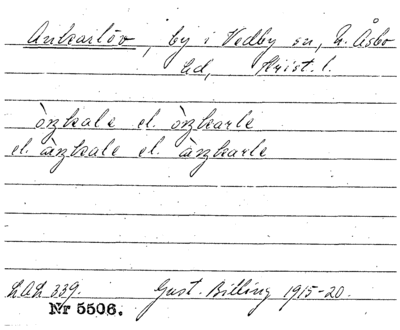 Ankarlöv, by i Vedby sn, N. Åsbo
hd, Krist. l.
ònkale el. ònkarle
el. ànkale el. ànkarle
LAL 339. Gust. Billing 1915-20.
Nr 5506.